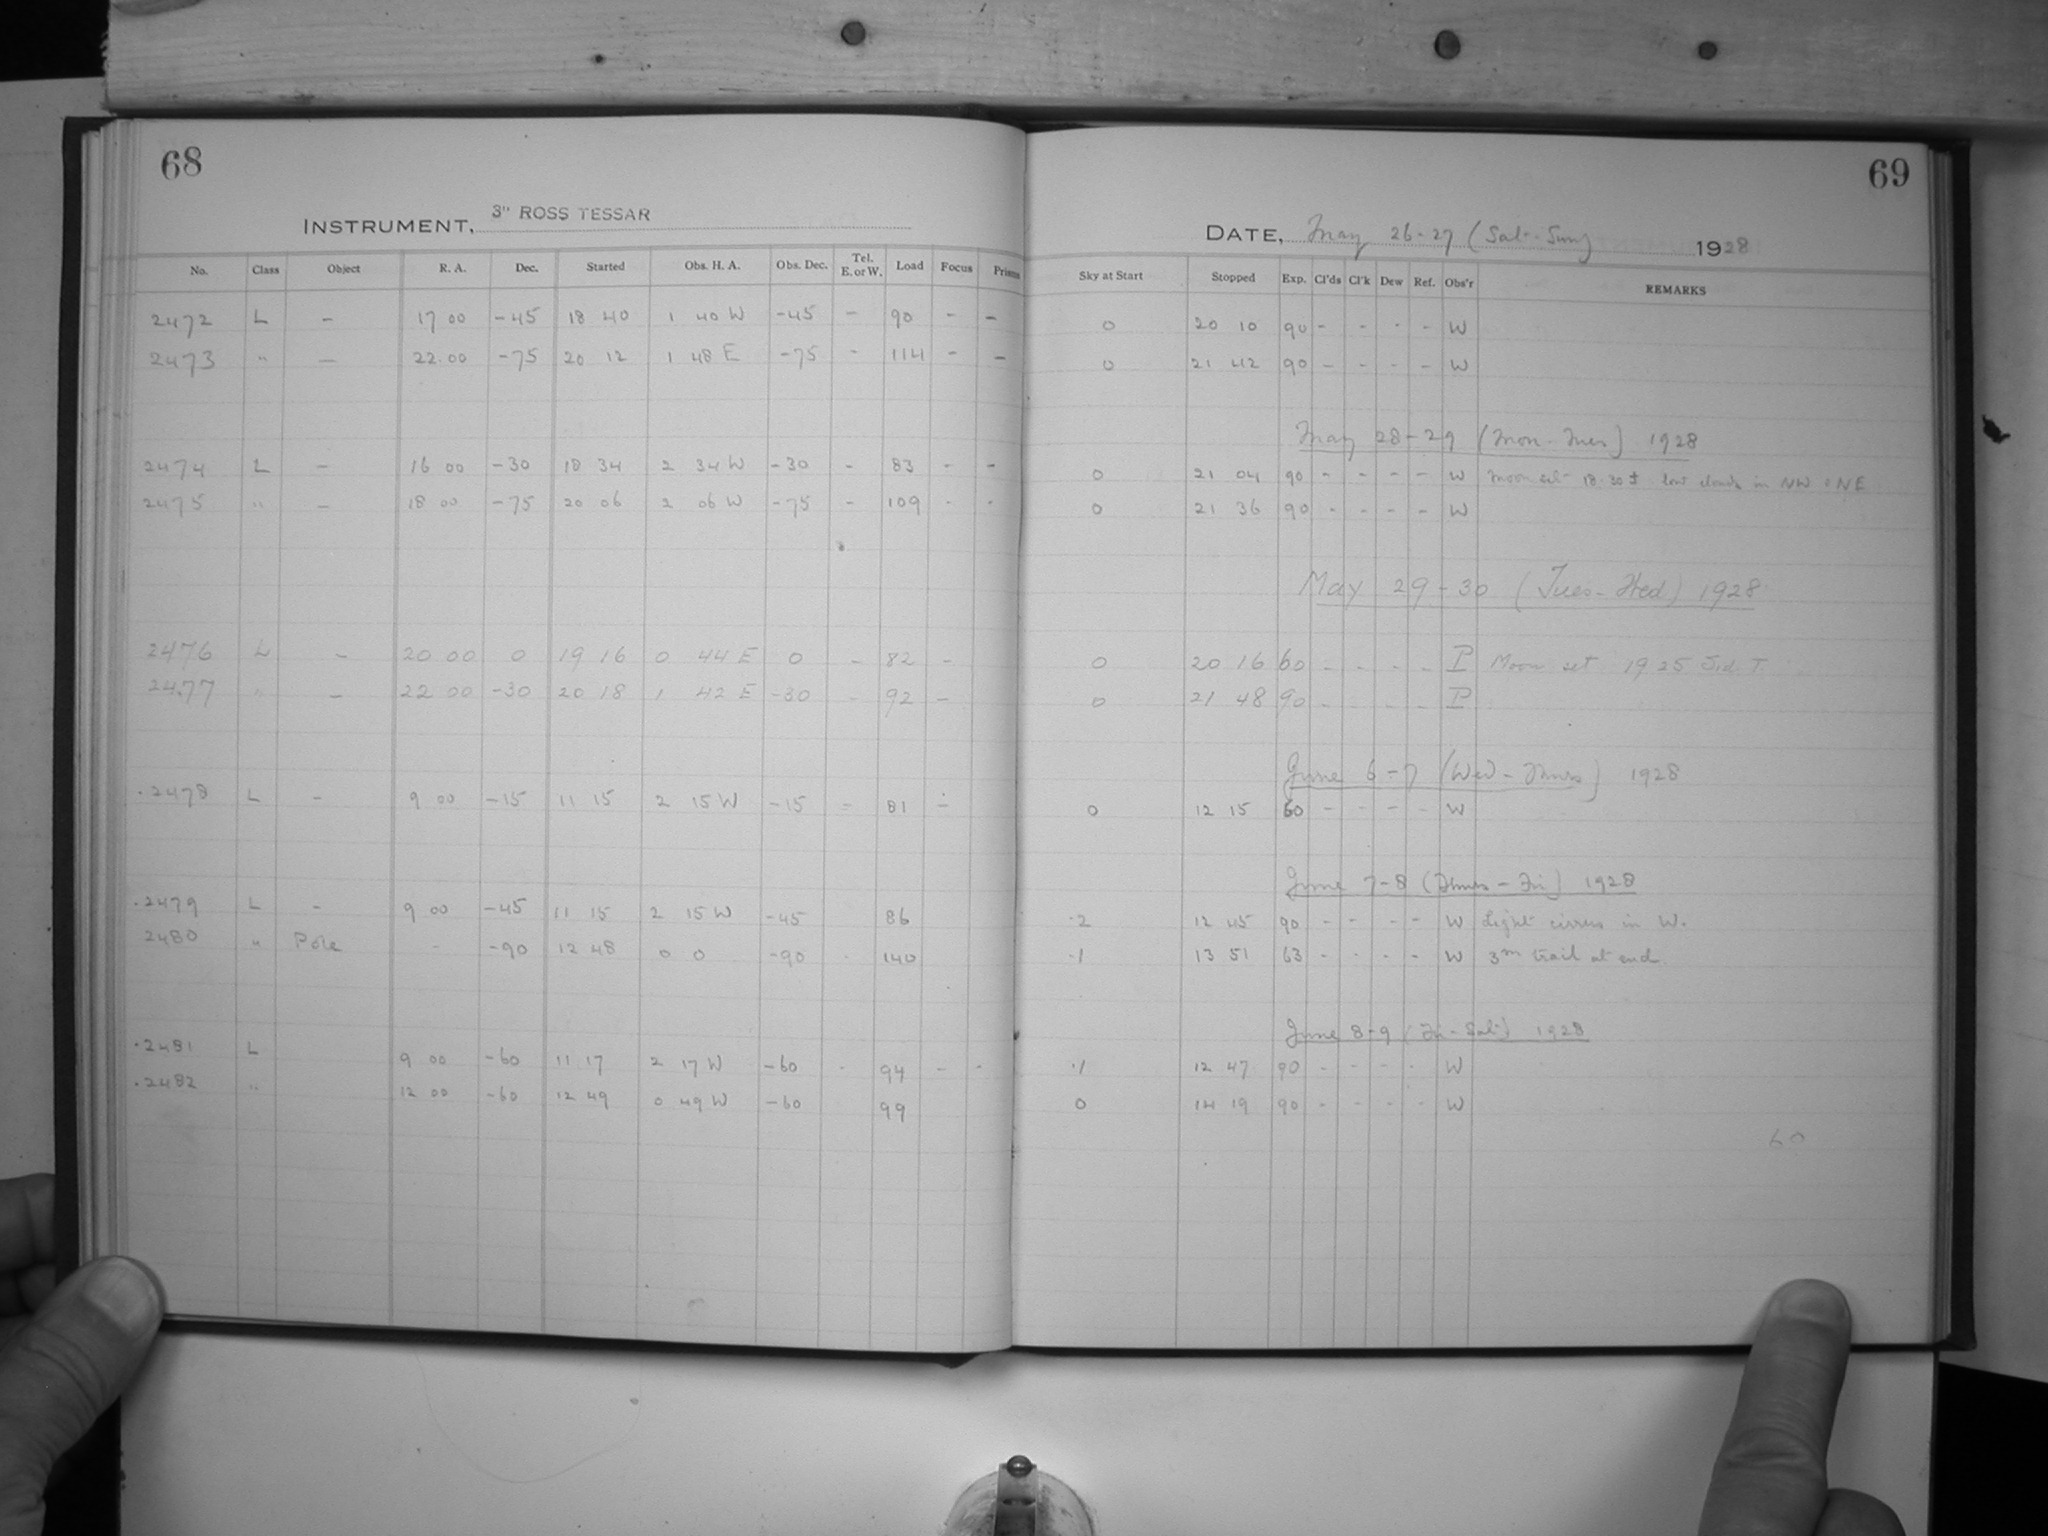 68
INSTRUMENT, 3" ROSS TESSAR
No. Class Object R. A. Dec. Started Obs. H. A. Obs. Dec. Tel. E. or W. Load Focus Prisms
2472 L - 17 00 -45 18 40 1 40 W -45 - 90 - -
2473 " - 22.00 -75 20 12 1 48 E -75 - 114 - -
2474 L - 16 00 -30 18 34 2 34 W -30 - 83 - -
2475 " - 18 00 -75 20 06 2 06 W -75 - 109 - -
2476 L - 20 00 0 19 16 0 44 E 0 - 82 -
2477 " - 22 00 -30 20 18 1 42 E -30 - 92 -
.2478 L - 9 00 -15 11 15 2 15 W -15 - 81 -
.2479 L - 9 00 -45 11 15 2 15 W -45 86
2480 " Pole - -90 12 48 0 0 -90 - 140
.2481 L 9 00 -60 11 17 2 17 W -60 - 94 - -
.2482 " 12 00 -60 12 49 0 49 W -60 99
69
DATE, May 26-27 (Sat-Sun) 1928
Sky at Start Stopped Exp. Cl'ds Cl'k Dew Ref. Obs'r REMARKS
0 20 10 90 - - - - W
0 21 42 90 - - - - W
May 28-29 (Mon-Tues) 1928
0 21 04 90 - - - - W Moon set 18.30± low clouds in NW & NE
0 21 36 90 - - - - W
May 29-30 (Tues-Wed) 1928
0 20 16 60 - - - - P Moon set 19 25 Sid T
0 21 48 90 - - - - P
June 6-7 (Wed-Thurs) 1928
0 12 15 60 - - - - W
June 7-8 (Thurs-Fri) 1928
.2 12 45 90 - - - - W Light cirrus in W.
.1 13 51 63 - - - - W 3m trail at end.
June 8-9 (Fri-Sat) 1928
.1 12 47 90 - - - - W
0 14 19 90 - - - - W
60